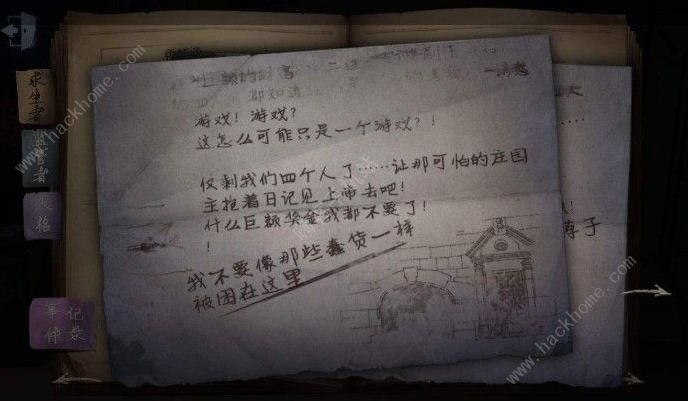 游戏！游戏？
这怎么可能只是一个游戏？！
仅剩我们四个人了……让那可怕的庄园
主抱着日记见上帝去吧！
什么巨额奖金我都不要了！
！
我不要像那些蠢货一样
被困在这里
求生者
监管者
人格
事件
记录
www.hackhome.com
www.hackhome.com